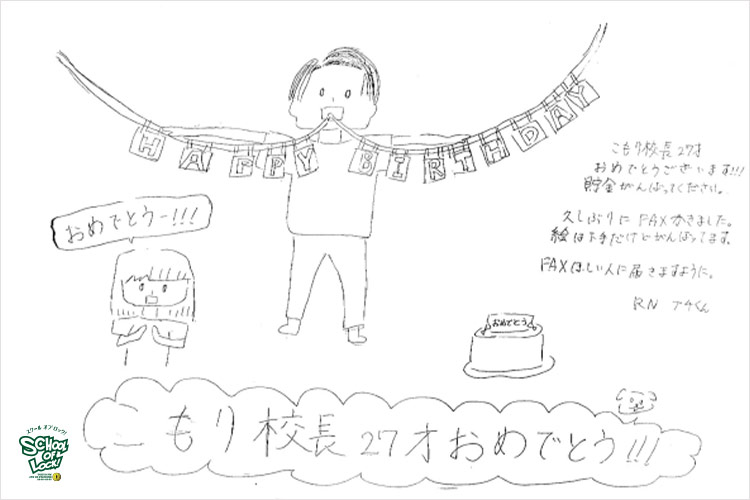 HAPPY BIRTHDAY
こもり校長27才
おめでとうございます!!!
貯金がんばってください。
久しぶりにFAXかきました。
絵は下手だけどがんばってます。
FAXほしい人に届きますように。
RN アキくん
おめでとうー!!!
おめでとう
こもり校長27才おめでとう!!!
スクールオブロック!
SCHOOL
OF
LOCK!